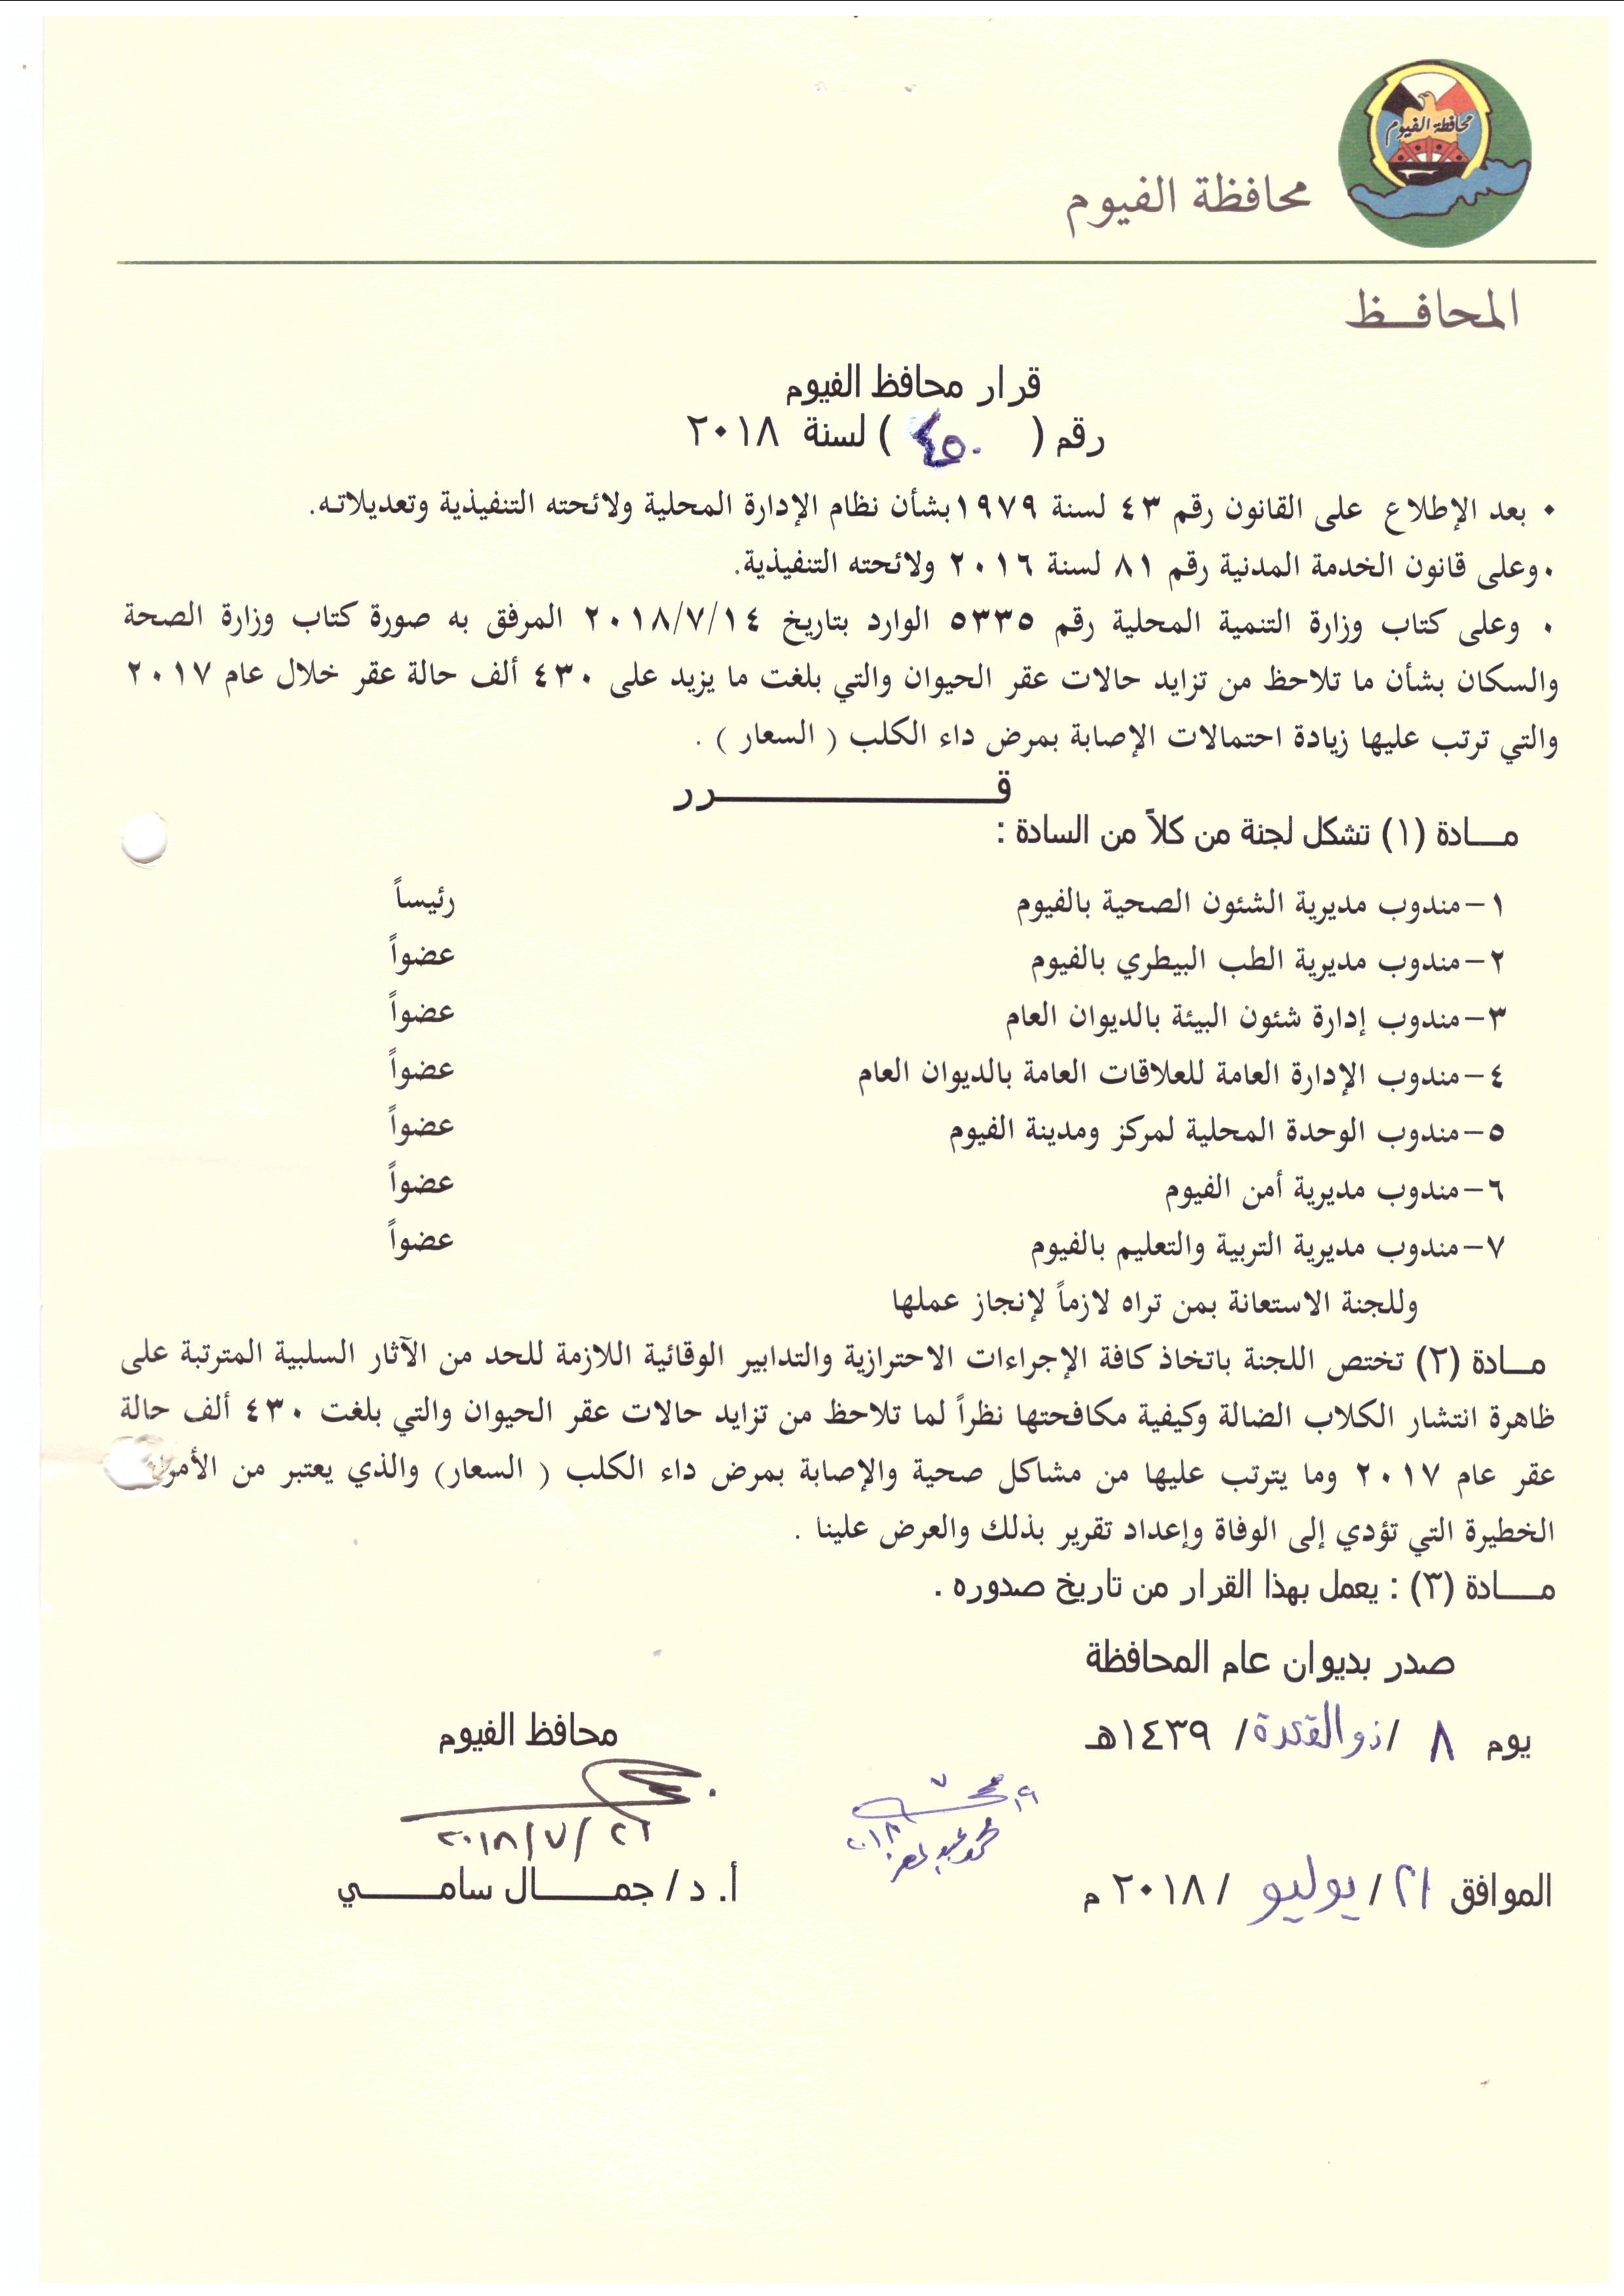 محافظة الفيوم
محافظة الفيوم
المحافــظ
قرار محافظ الفيوم
رقم ( ٤٥٠ ) لسنة ٢٠١٨
• بعد الإطلاع على القانون رقم ٤٣ لسنة ١٩٧٩بشأن نظام الإدارة المحلية ولائحته التنفيذية وتعديلاته.
• وعلى قانون الخدمة المدنية رقم ٨١ لسنة ٢٠١٦ ولائحته التنفيذية.
• وعلى كتاب وزارة التنمية المحلية رقم ٥٣٣٥ الوارد بتاريخ ٢٠١٨/٧/١٤ المرفق به صورة كتاب وزارة الصحة
والسكان بشأن ما تلاحظ من تزايد حالات عقر الحيوان والتي بلغت ما يزيد على ٤٣٠ ألف حالة عقر خلال عام ٢٠١٧
والتي ترتب عليها زيادة احتمالات الإصابة بمرض داء الكلب ( السعار ) .
قــــــــــــــــرر
مــــادة (١) تشكل لجنة من كلاً من السادة :
١– مندوب مديرية الشئون الصحية بالفيوم رئيساً
٢– مندوب مديرية الطب البيطري بالفيوم عضواً
٣– مندوب إدارة شئون البيئة بالديوان العام عضواً
٤– مندوب الإدارة العامة للعلاقات العامة بالديوان العام عضواً
٥– مندوب الوحدة المحلية لمركز ومدينة الفيوم عضواً
٦– مندوب مديرية أمن الفيوم عضواً
٧– مندوب مديرية التربية والتعليم بالفيوم عضواً
وللجنة الاستعانة بمن تراه لازماً لإنجاز عملها
مـــادة (٢) تختص اللجنة باتخاذ كافة الإجراءات الاحترازية والتدابير الوقائية اللازمة للحد من الآثار السلبية المترتبة على
ظاهرة انتشار الكلاب الضالة وكيفية مكافحتها نظراً لما تلاحظ من تزايد حالات عقر الحيوان والتي بلغت ٤٣٠ ألف حالة
عقر عام ٢٠١٧ وما يترتب عليها من مشاكل صحية والإصابة بمرض داء الكلب ( السعار) والذي يعتبر من
الخطيرة التي تؤدي إلى الوفاة وإعداد تقرير بذلك والعرض علينا .
مــــادة (٣) : يعمل بهذا القرار من تاريخ صدوره .
صدر بديوان عام المحافظة
يوم ٨ / ذو القعدة / ١٤٣٩هـ
محافظ الفيوم
٢٠١٨/٧/٢٦
الموافق ٢١ / يوليو / ٢٠١٨ م
أ. د / جمــــال سامــــي